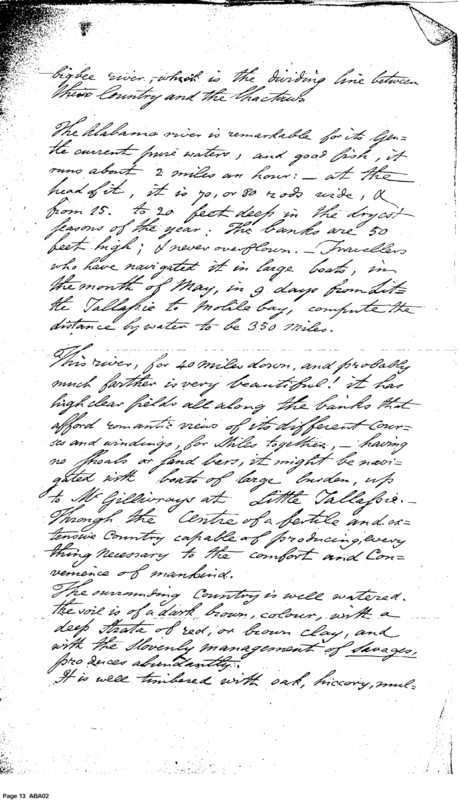 bigbee river, which is the dividing line between
their Country and the Chactaws
The Alabama river is remarkable for its Gen=
tle current pure waters, and good fish, it
runs about 2 miles an hour: - at the
head of it, it is 70, or 80 rods wide, &
from 15. to 20 feet deep in the dryest
seasons of the year: The banks are 50
feet high; & never overflown. - Travellers
who have navigated it in large boats, in
the month of May, in 9 days from Lit=
tle Tallassie to Mobile bay, compute the
distance by water to be 350 miles.
This river, for 40 miles down, and probably
much farther is very beautiful! it has
high clear fields all along the banks that
afford romantic views of its different Cour=
ses and windings, for Miles together, - having
no shoals or sand bars, it might be navi=
gated with boats of large burden, up
to Mc Gillivrays at Little Tallassie. -
Through the Centre of a fertile and ex=
tensive Country capable of producing every
thing necessary to the comfort and Con=
venience of mankind.
The surrounding Country is well watered.
the soil is of a dark brown, colour, with a
deep strata of red, or brown clay, and
with the slovenly management of savages,
produces abundantly.
It is well timbered with oak, hiccory, mul=
Page 13 ABA02